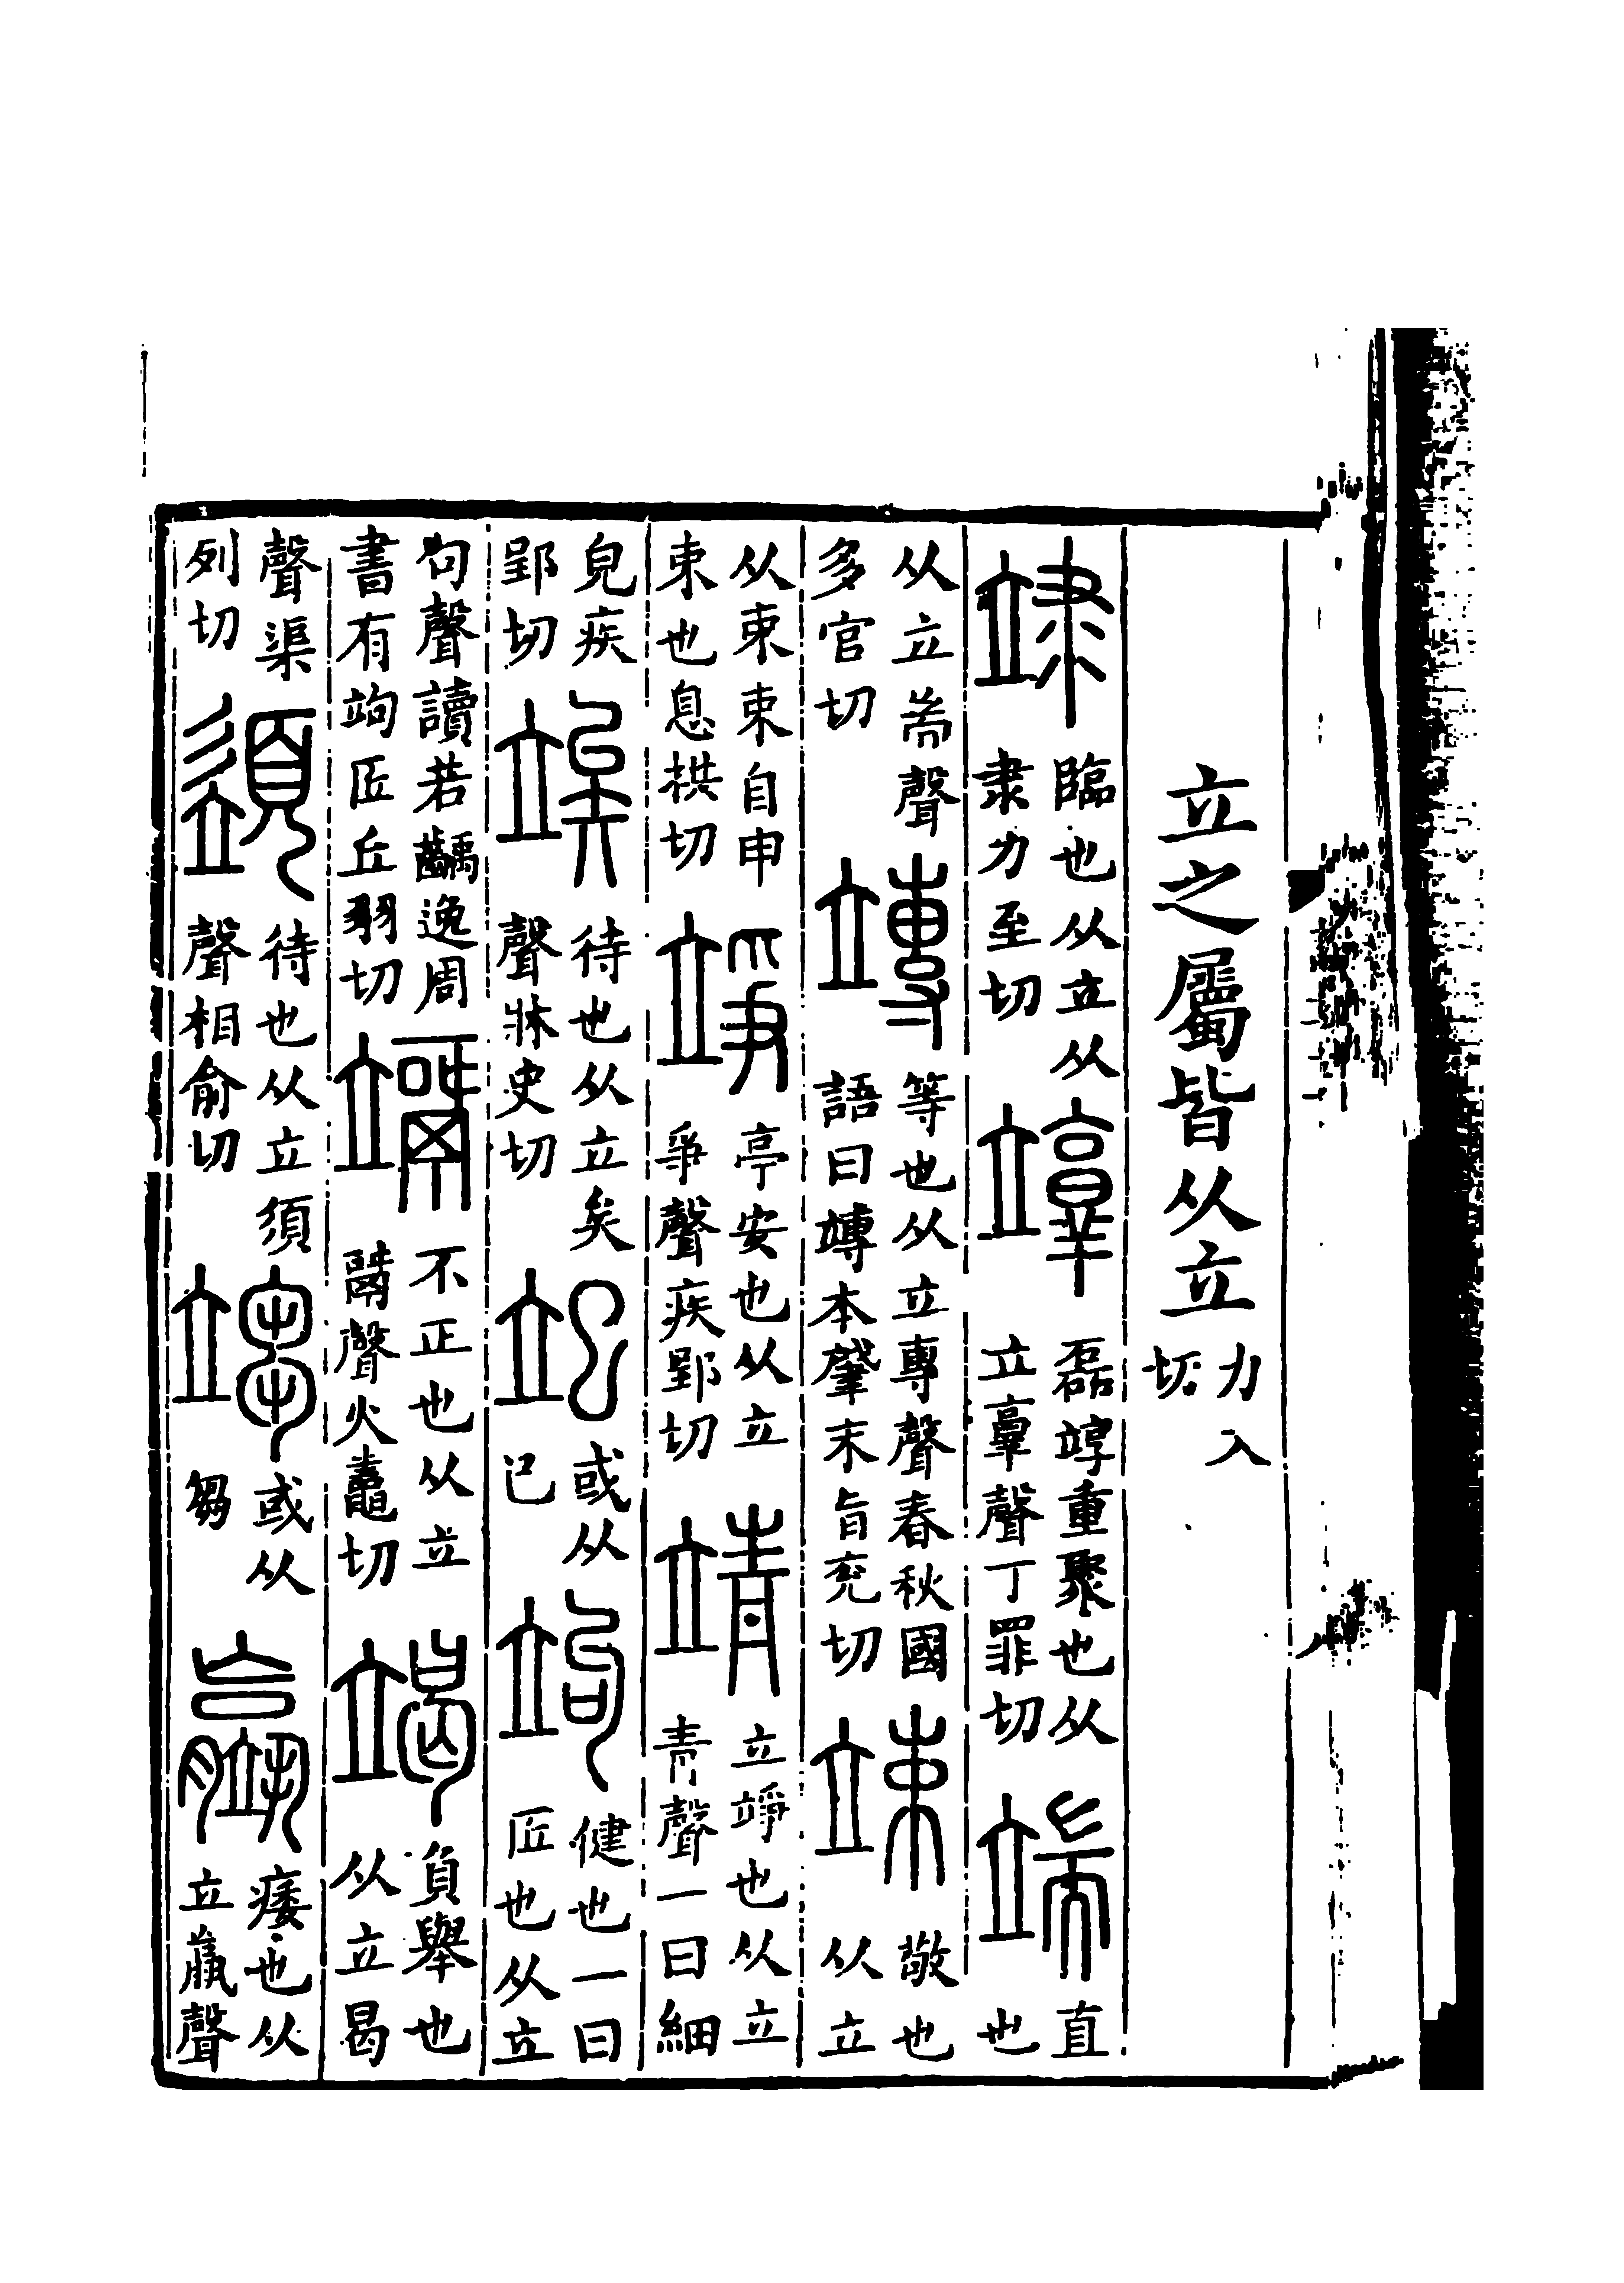 立之屬皆从立力入切
䇐臨也从立从隶力至切𥪕磊𥪕重聚也从立𦎫聲丁罪切端直也
从立耑聲多官切竱等也从立專聲春秋國語曰竱本肇末旨兖切竦敬也从立
从束束自申束也息拱切竫亭安也从立爭聲疾郢切靖立竫也从立青聲一曰細
皃疾郢切竢待也从立矣聲牀史切或从巳竘健也一曰匠也从立
句聲讀若齲逸周書有竘匠丘羽切竵不正也从立聲火鼃切竭負舉也从立曷
聲渠列切䇓待也从立須聲相俞切或从芻痿也从立羸聲